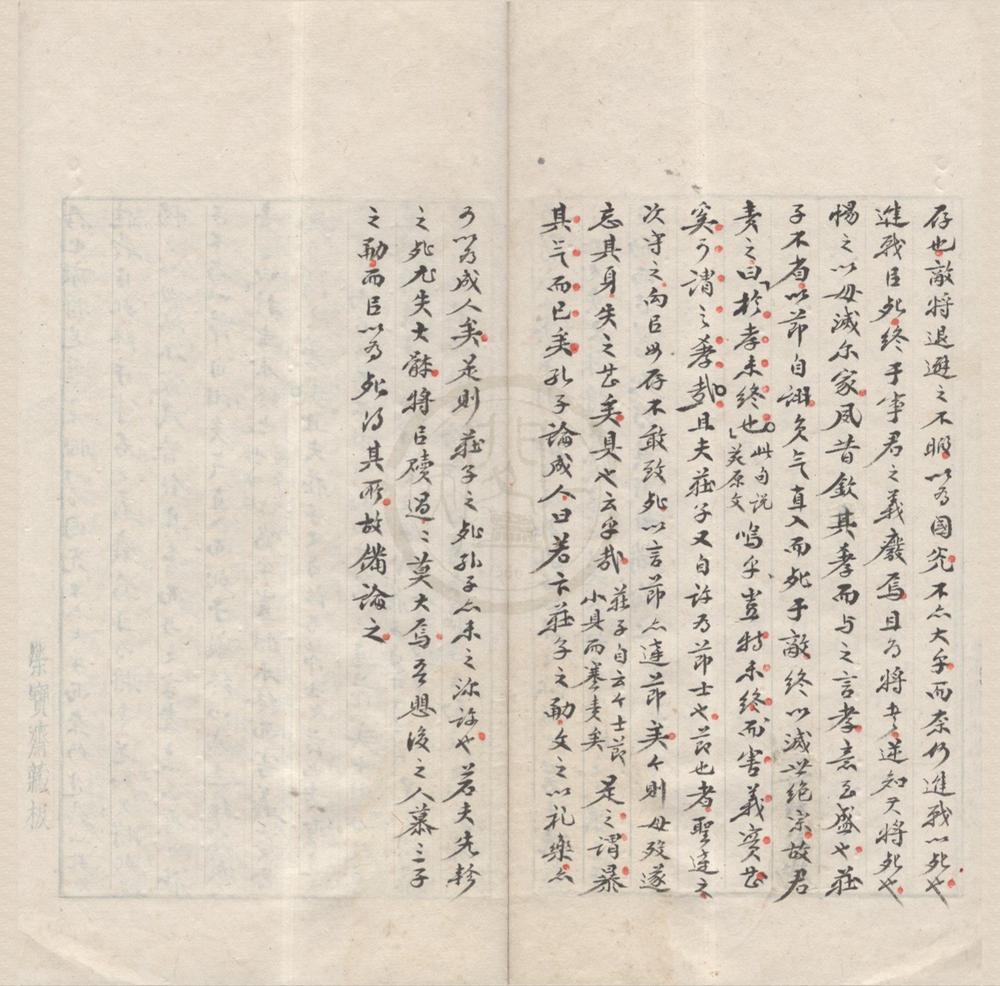 存也敵將退避之不暇以为國先不亦大乎而奈何進戰以死也
進戰臣死終于事君之義廢焉且为將者逆知其將死也
惕之以毋滅尔家風昔欽其孝而与之言孝意至盛也莊
子不省以節自詡負气直入而死于敵終以滅世絕宗故君
責之曰於孝未終也此句説
苂原文
嗚乎豈特未終而害義實甚
奚可谓之孝哉且夫莊子又自許为節士也節也者聖達之
次守之向臣毋存不敢致死以言節亦達節矣今則毋歿遂
忘其身失之甚矣具也云乎哉
莊子自云今士節
小具而塞責矣
是之谓暴
其气而已矣孔子論成人曰若卞莊子之勈文之以礼樂亦
可以为成人矣是則莊子之死孔子亦未之深許也若夫先軫
之死尤失大體將臣瀆過〻莫大焉吾恐後之人慕二子
之勈而臣以为死得其所故備論之
榮寶齋藏板